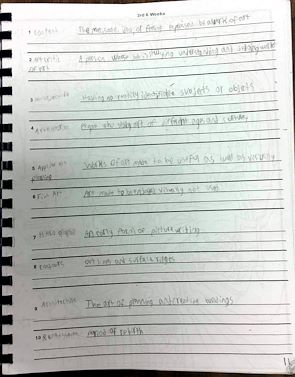 2nd 6 Weeks
1 content The message, idea, or feeling expressed by a work of art
2 art critic A person whose job is studying understanding and judging works
of art
3 Having no subjects or objects
4 People who study art of different ages and cultures
5 Applied art Works of art made to be useful as well as visually
pleasing
6 Fine Art Art made to be visually not used
7 An early form of picture writing
8 outlines and surface ridges
9 Architecture The art of planning and buildings
10 Period of rebirth